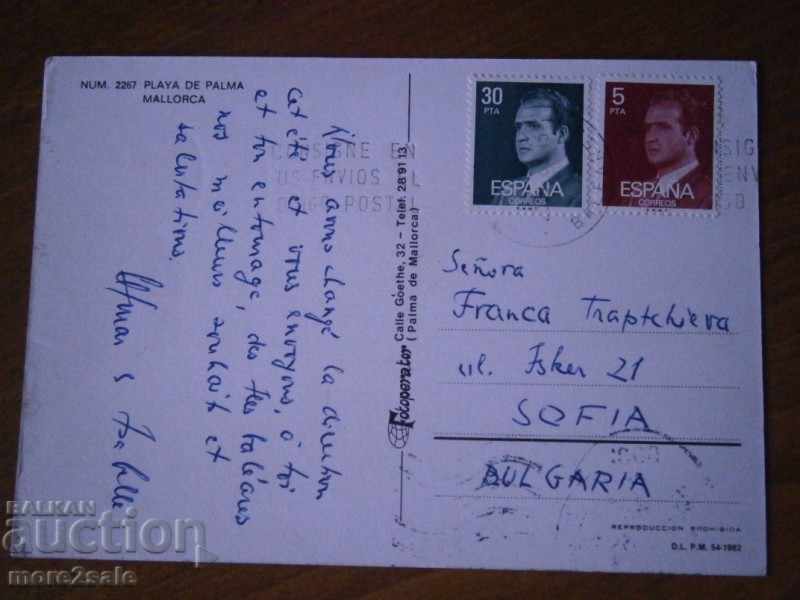 NUM. 2267 PLAYA DE PALMA
MALLORCA
Nous avons changé la direction
cet été et vous envoyons, à toi
et ton entourage, des îles baléares
nos meilleurs souhait et
salutations.
& Isabelle
Fotoperator Calle Goethe, 32 - Telef. 28 91 13
(Palma de Mallorca)
30
PTA
ESPAÑA
CORREOS
5
PTA
ESPAÑA
CORREOS
CONSIGNE EN
SUS ENVIOS EL
POSTAL
Señora
Franca Traptchieva
ul. Isker 21
SOFIA
BULGARIA
REPRODUCCION PROHIBIDA
D.L. P.M. 54-1982
BALKAN
auction
more2sale